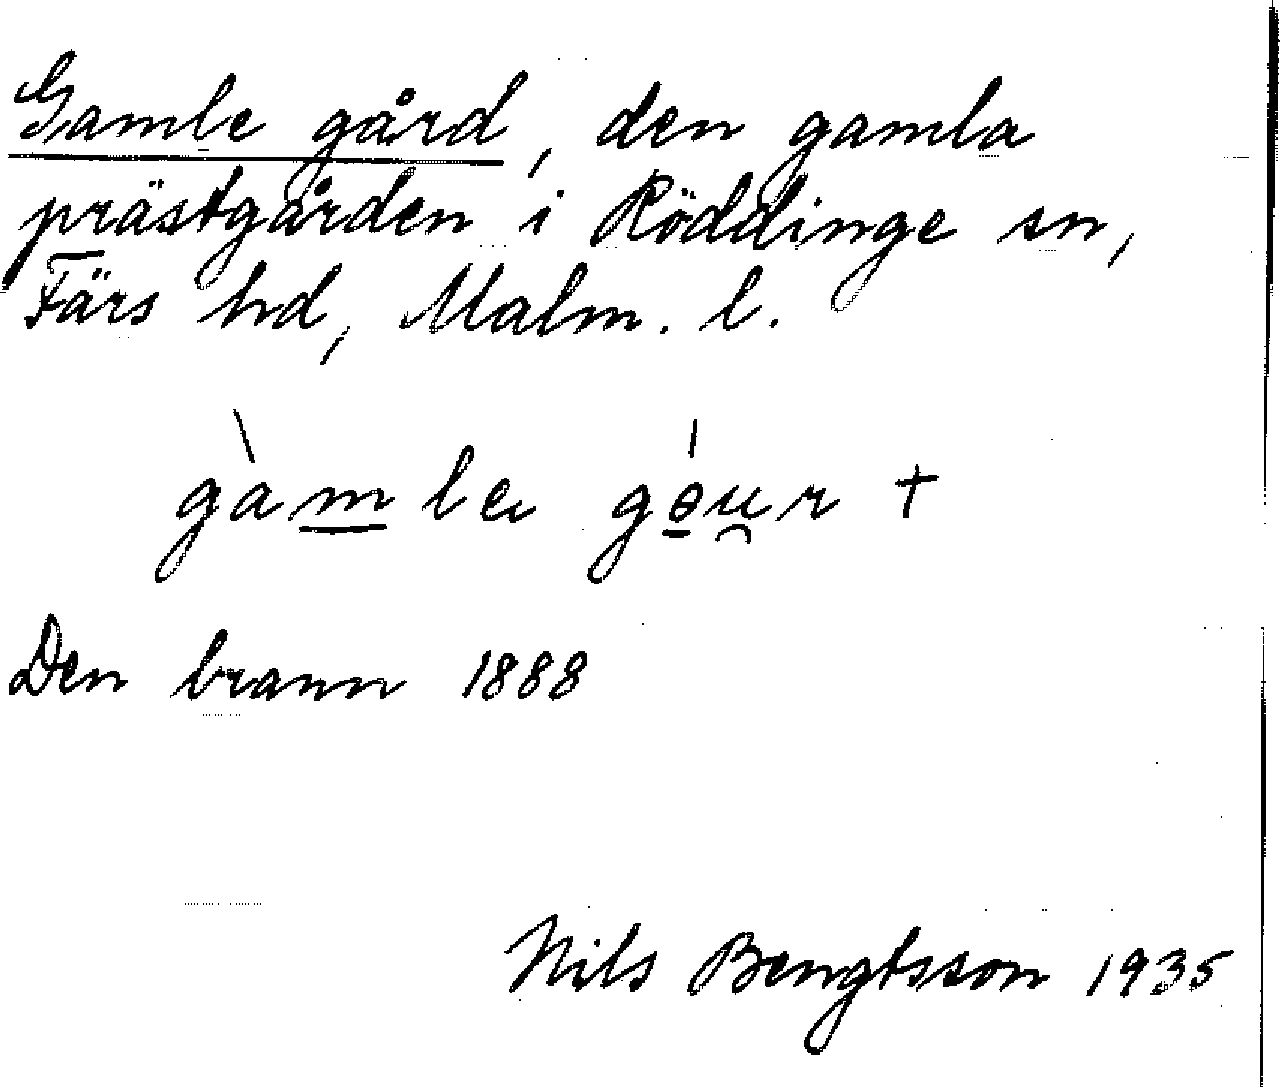 Gamle gård, den gamla
prästgården i Röddinge sn,
Färs hd, Malm. l.
gàmle gɵ́u̯r +
Den brann 1888
Nils Bengtsson 1935